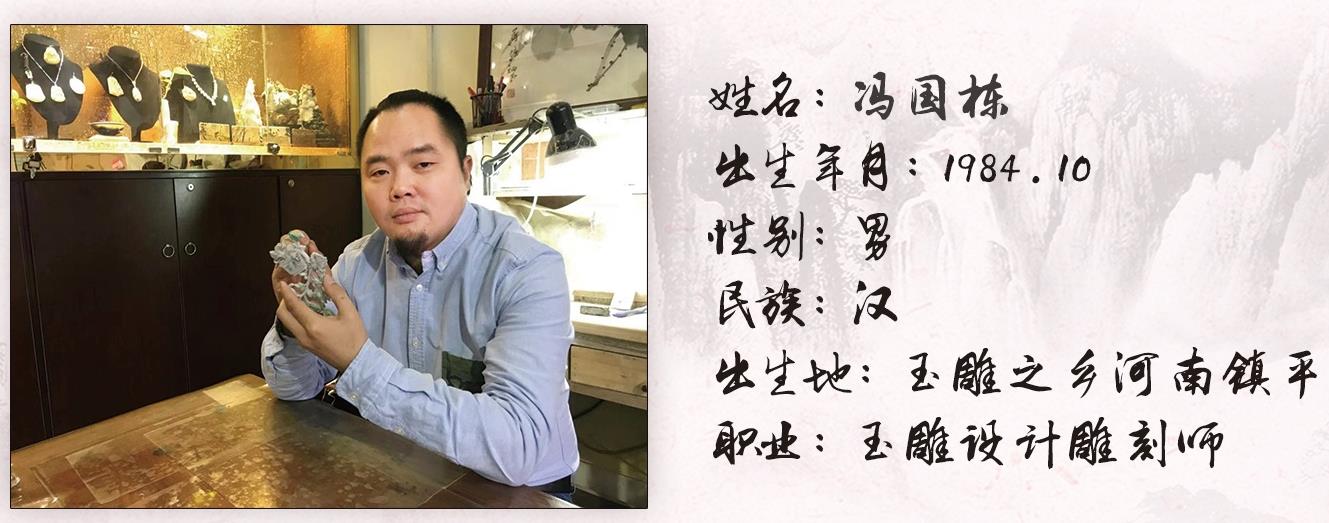 姓名：冯国栋
出生年月：1984.10
性别：男
民族：汉
出生地：玉雕之乡河南镇平
职业：玉雕设计雕刻师